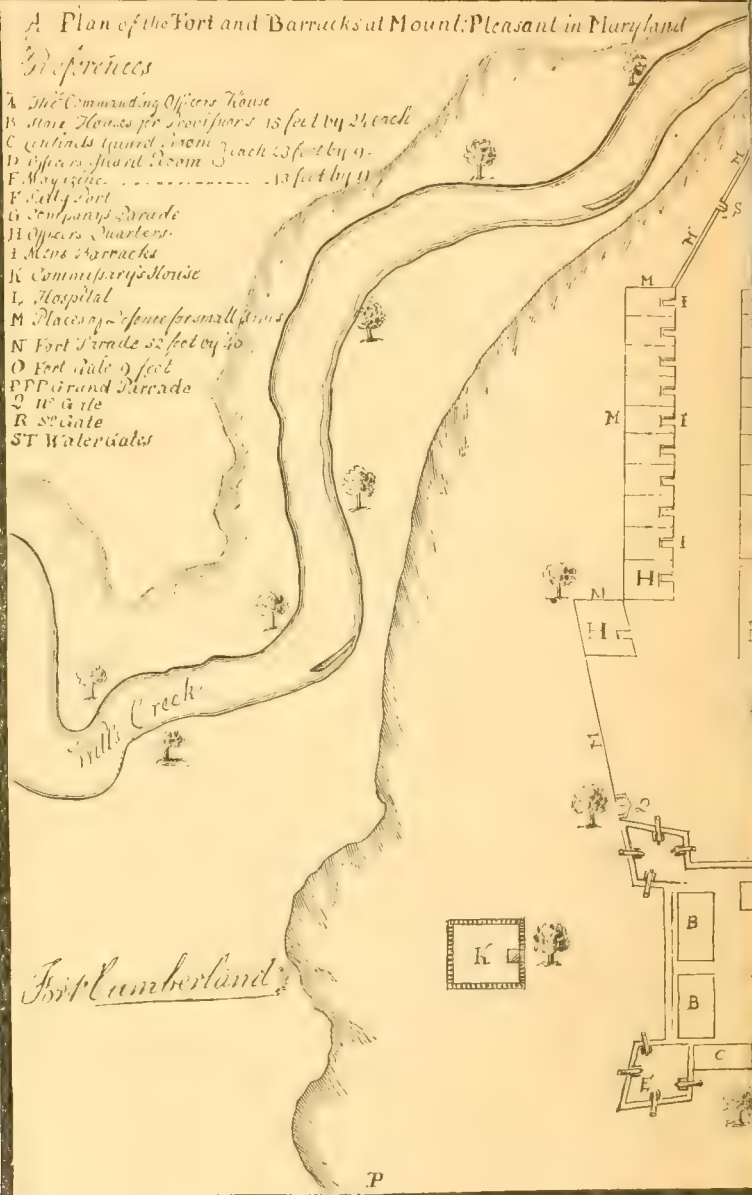 A Plan of the Fort and Barracks at Mount: Pleasant in Maryland
References
A The Commanding Officers House
B Store Houses for Provisions 15 feet by 24 each
C Centinels Guard Room
D Officers Guard Room } each 23 feet by 9.
E Magazine 13 feet by 11
F Sally Port
G Companys Parade
H Officers Quarters
I Mens Barracks
K Commissary's House
L Hospital
M Places of Defence for small Arms
N Fort Parade 52 feet by 40
O Fort Gate 9 feet
PPP Grand Parcade
Q Wt Gate
R So Gate
ST Water Gates
M
S
M
M
I
M
I
I
H
H
Will's Creek
2
B
K
Fort Cumberland
B
C
E
P